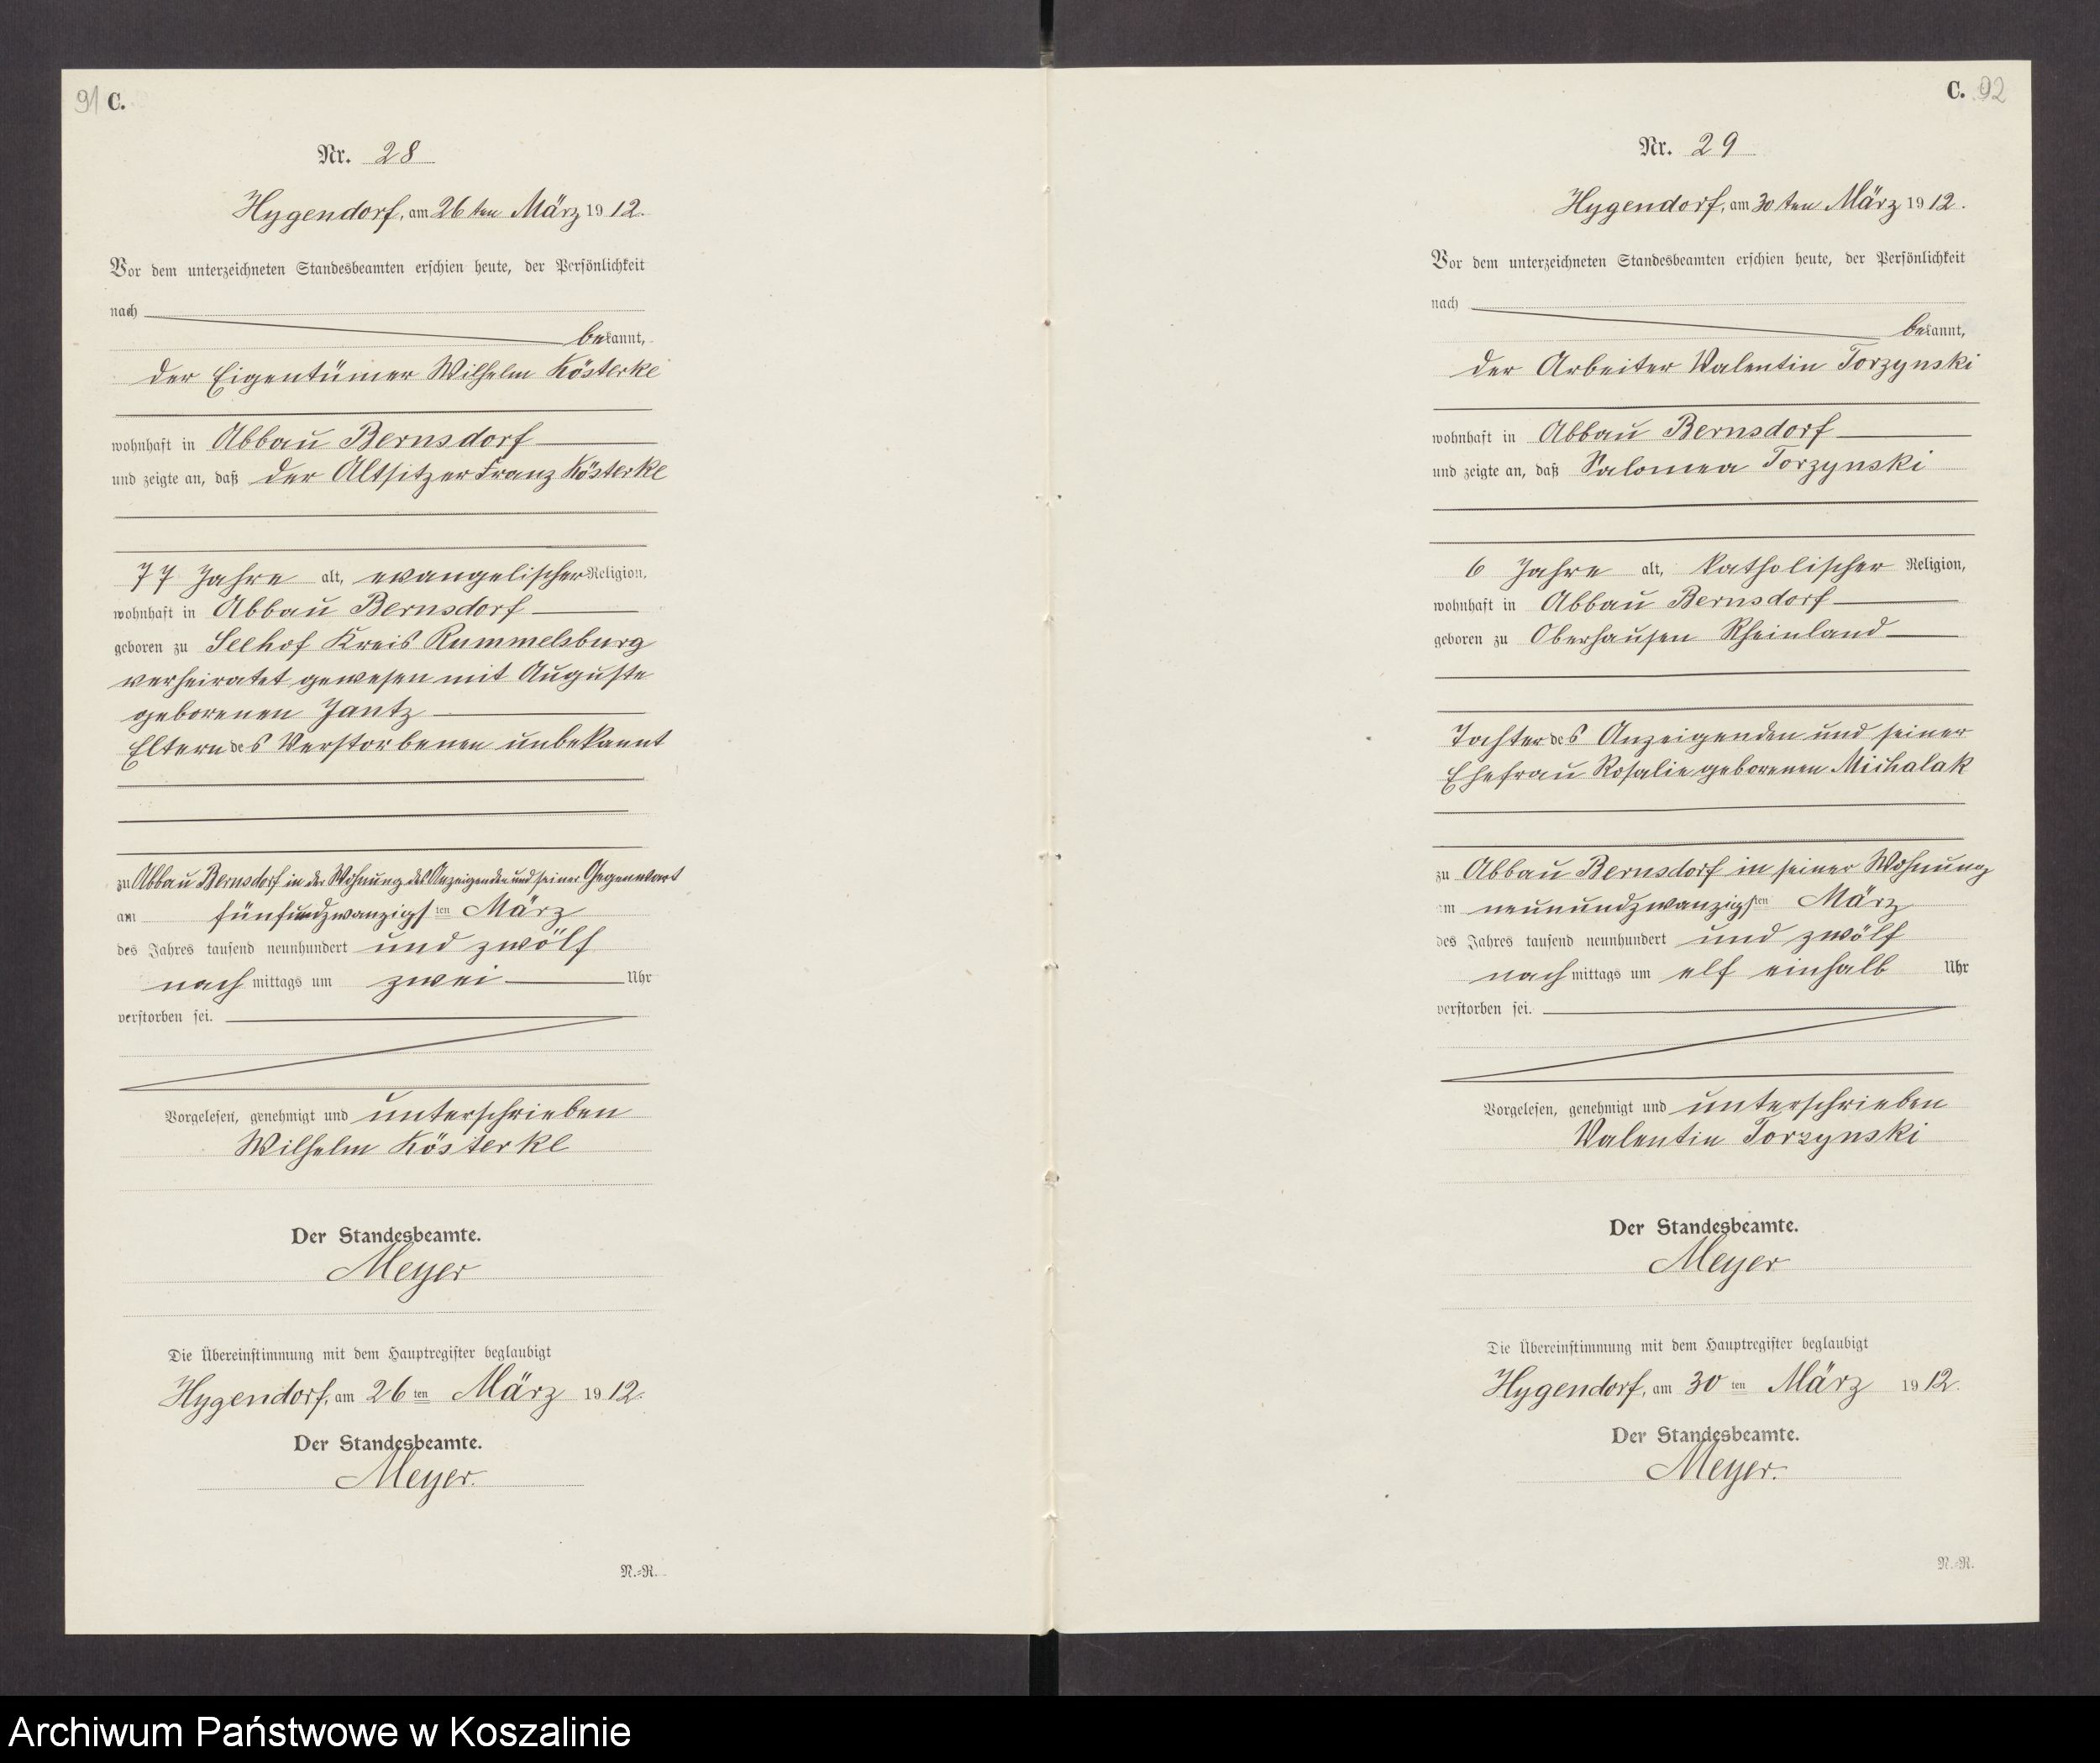 91 C.
Nr. 28
Hygendorf, am 26ten März 1912.
Vor dem unterzeichneten Standesbeamten erschien heute, der Persönlichkeit
nach
bekannt,
der Eigentümer Wilhelm Kösterke
wohnhaft in Abbau Bernsdorf
und zeigte an, daß der Altsitzer Franz Kösterke
77 Jahre alt, evangelischer Religion,
wohnhaft in Abbau Bernsdorf
geboren zu Seehof Kreis Rummelsburg
verheiratet gewesen mit Auguste
geborenen Jantz
Eltern des Verstorbenen unbekannt
zu Abbau Bernsdorf in der Wohnung des Anzeigenden und seiner Gegenwart
am fünfundzwanzigsten März
des Jahres tausend neunhundert und zwölf
nachmittags um zwei Uhr
verstorben sei.
Vorgelesen, genehmigt und unterschrieben
Wilhelm Kösterke
Der Standesbeamte.
Meyer
Die Übereinstimmung mit dem Hauptregister beglaubigt
Hygendorf, am 26ten März 1912.
Der Standesbeamte.
Meyer.
N.-R.
C. 92
Nr. 29
Hygendorf, am 30ten März 1912.
Vor dem unterzeichneten Standesbeamten erschien heute, der Persönlichkeit
nach
bekannt,
der Arbeiter Valentin Torzynski
wohnhaft in Abbau Bernsdorf
und zeigte an, daß Salomea Torzynski
6 Jahre alt, katholischer Religion,
wohnhaft in Abbau Bernsdorf
geboren zu Oberhausen Rheinland
Tochter des Anzeigenden und seiner
Ehefrau Rosalie geborenen Michalak
zu Abbau Bernsdorf in seiner Wohnung
am neunundzwanzigsten März
des Jahres tausend neunhundert und zwölf
nachmittags um elf einhalb Uhr
verstorben sei.
Vorgelesen, genehmigt und unterschrieben
Valentin Torzynski
Der Standesbeamte.
Meyer
Die Übereinstimmung mit dem Hauptregister beglaubigt
Hygendorf, am 30ten März 1912.
Der Standesbeamte.
Meyer.
N.-R.
Archiwum Państwowe w Koszalinie